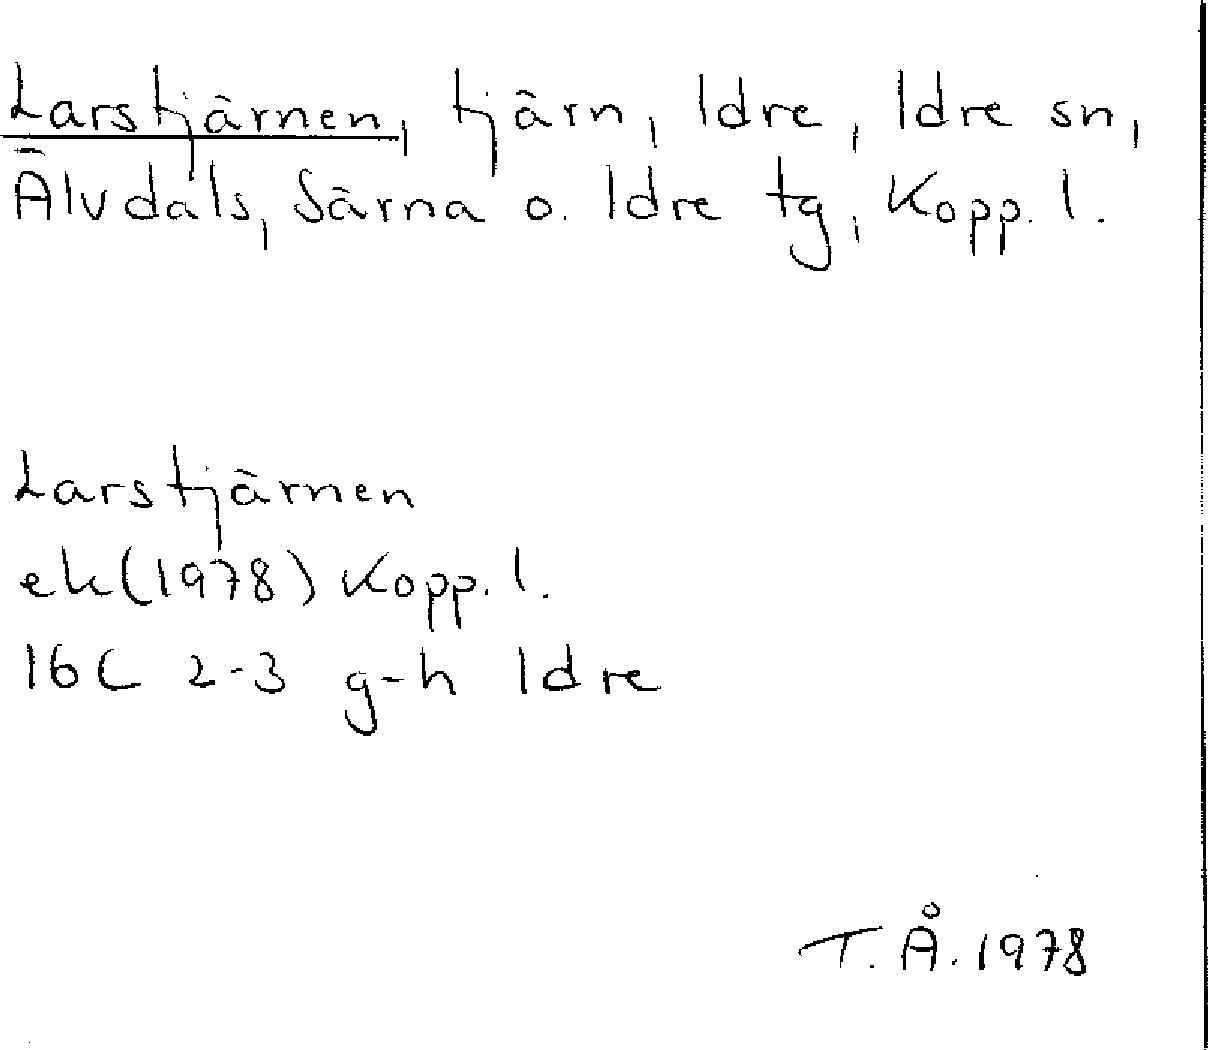 Larstjärnen, tjärn, Idre, Idre sn,
Älvdals, Särna o. Idre tg, Kopp. l.
Larstjärnen
ek(1978) Kopp. l.
16C 2-3 g-h Idre
T.Å.1978